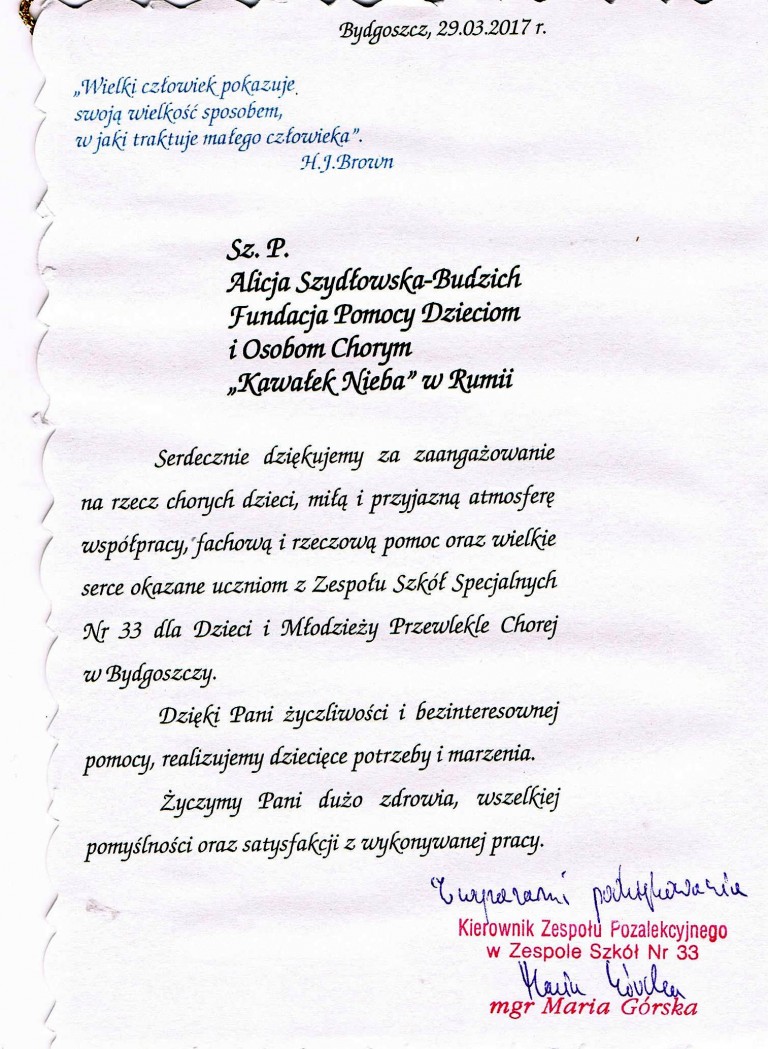 Bydgoszcz, 29.03.2017 r.
„Wielki człowiek pokazuje
swoją wielkość sposobem,
w jaki traktuje małego człowieka”.
H.J.Brown
Sz. P.
Alicja Szydłowska-Budzich
Fundacja Pomocy Dzieciom
i Osobom Chorym
„Kawałek Nieba” w Rumii
Serdecznie dziękujemy za zaangażowanie
na rzecz chorych dzieci, miłą i przyjazną atmosferę
współpracy, fachową i rzeczową pomoc oraz wielkie
serce okazane uczniom z Zespołu Szkół Specjalnych
Nr 33 dla Dzieci i Młodzieży Przewlekle Chorej
w Bydgoszczy.
Dzięki Pani życzliwości i bezinteresownej
pomocy, realizujemy dziecięce potrzeby i marzenia.
Życzymy Pani dużo zdrowia, wszelkiej
pomyślności oraz satysfakcji z wykonywanej pracy.
Z wyrazami podziękowania
Kierownik Zespołu Pozalekcyjnego
w Zespole Szkół Nr 33
Maria Górska
mgr Maria Górska